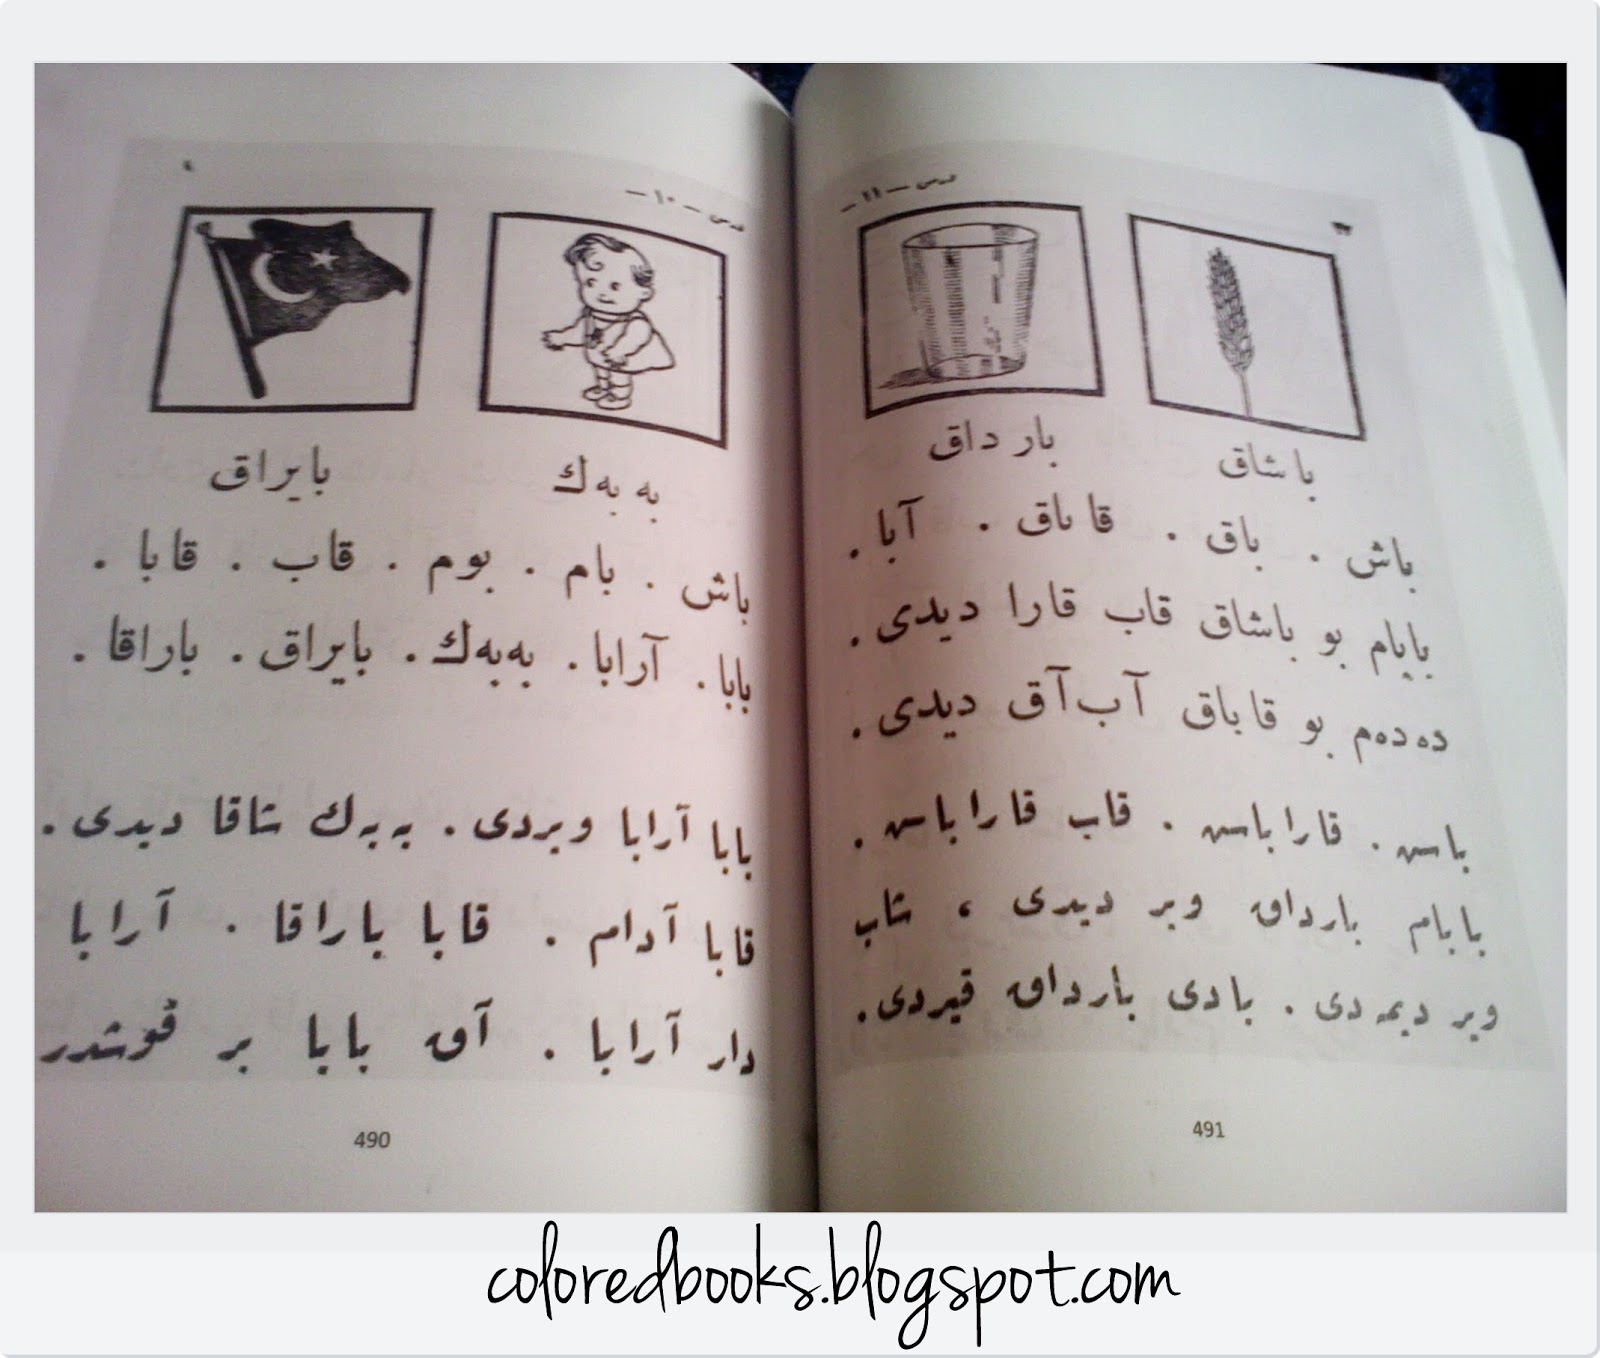 درس — ١٠ —
٤
به به ك
بايراق
باش . بام . بوم . قاب . قابا .
بابا . آرابا . به به ك . بايراق . باراقا .
بابا آرابا ويردى . به به ك شاقا ديدى .
قابا آدام . قابا باراقا . آرابا
دار آرابا . آق بابا بر قوشدر
490
درس — ١١ —
باشاق
بار داق
باش . باق . قاباق . آبا .
بابام بو باشاق قاب قارا ديدى .
ده ده م بو قاباق آب آق ديدى .
باس . قارا باس . قاب قارا باس .
بابام بارداق وير ديدى ، شاب
وير ديمه دى . بادى بارداق قيردى .
491
coloredbooks.blogspot.com